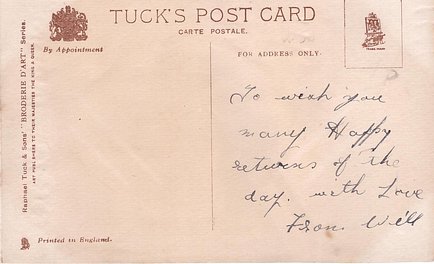 TUCK'S POST CARD
CARTE POSTALE.
By Appointment
FOR ADDRESS ONLY.
Raphael Tuck & Sons' "BRODERIE D'ART" Series.
ART PUBLISHERS TO THEIR MAJESTIES THE KING & QUEEN.
To wish you
many Happy
returns of the
day. with Love
From Will
Printed in England.